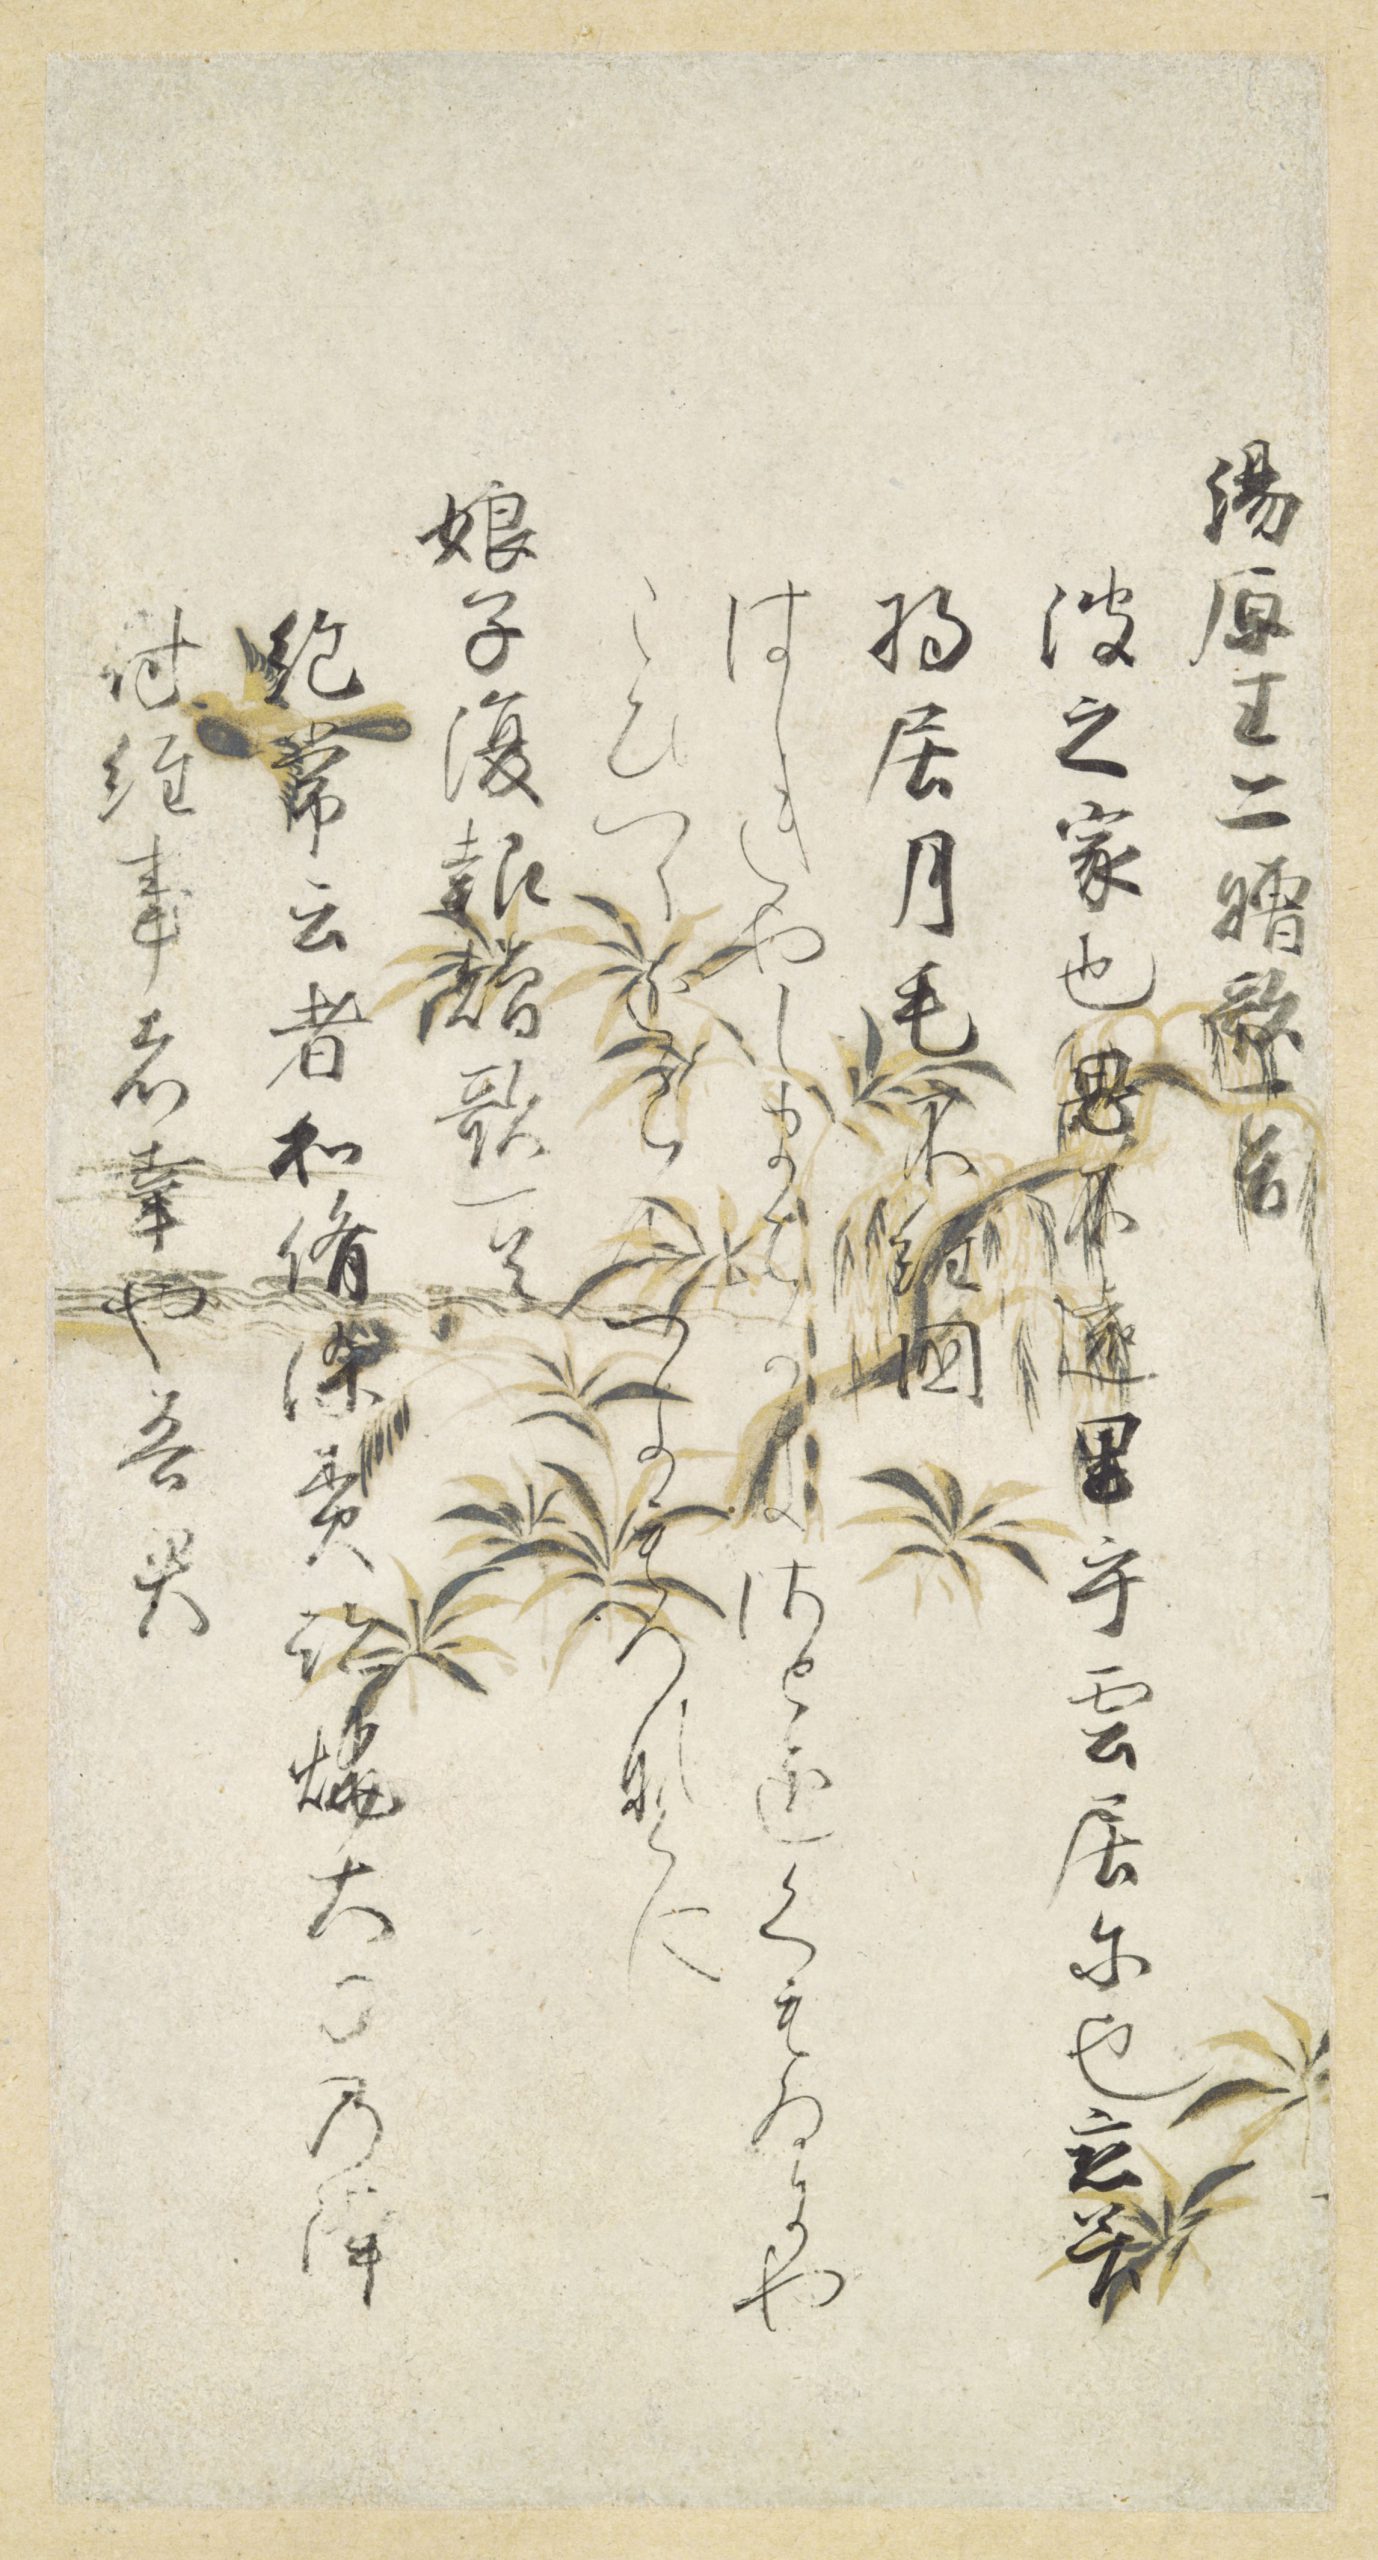 湯原王二贈歌一首
波之家也思不遠里乎雲居尓也恋管
将居月毛不経国
はしきやしまちかきさと遠くもゐにや
こひつゝをらむつきもへなくに
娘子復報贈歌一首
絶常云者和備染責跡焼大刀乃隔
付経事者幸也吾